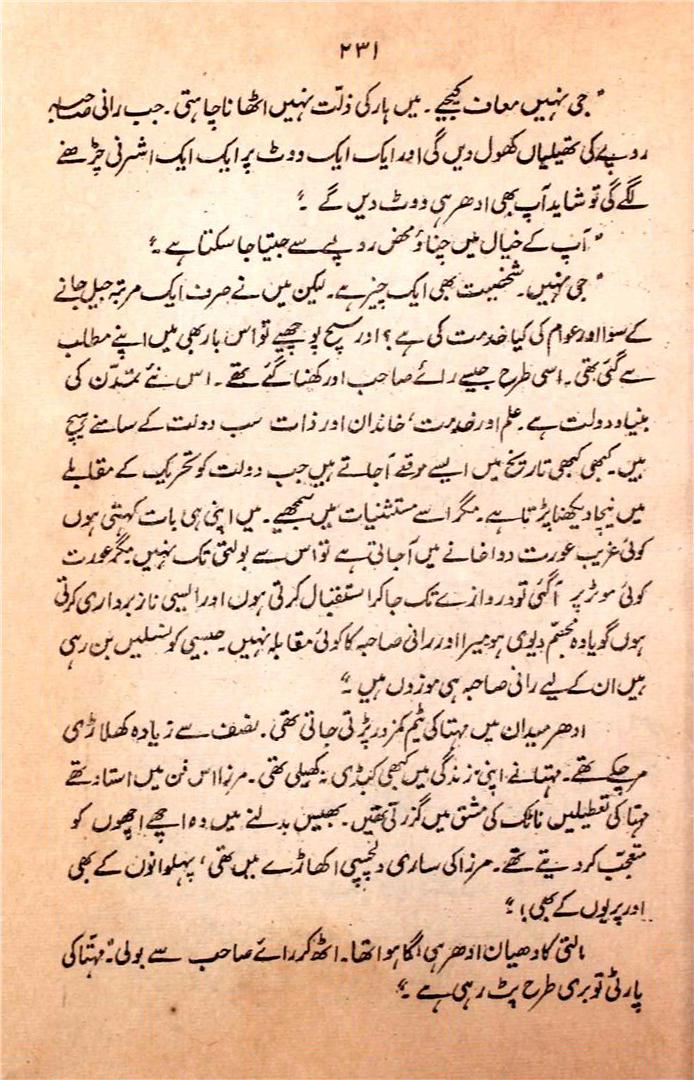 ۲۳۱
" جی نہیں معاف کیجیے۔ میں ہار کی ذلت نہیں اٹھانا چاہتی۔ جب رانی صاحبہ
روپے کی تھیلیاں کھول دیں گی اور ایک ایک ووٹ پر ایک ایک اشرفی چڑھنے
لگے گی تو شاید آپ بھی ادھر ہی ووٹ دیں گے ۔"
" آپ کے خیال میں چناؤ محض روپے سے جیتا جا سکتا ہے ۔"
" جی نہیں۔ شخصیت بھی ایک چیز ہے۔ لیکن میں نے صرف ایک مرتبہ جیل جانے
کے سوا اور عوام کی کیا خدمت کی ہے؟ اور سچ پوچھیے تو اس بار بھی میں اپنے مطلب
سے گئی تھی۔ اسی طرح جیسے رائے صاحب اور کھنا گئے تھے۔ اس نئے تمدّن کی
بنیاد دولت ہے۔ علم اور خدمت، خاندان اور ذات سب دولت کے سامنے ہیچ
ہیں۔ کبھی کبھی تاریخ میں ایسے موقعے آ جاتے ہیں جب دولت کو تحریک کے مقابلے
میں نیچا دیکھنا پڑتا ہے۔ مگر اسے مستثنیات میں سمجھیے۔ میں اپنی ہی بات کہتی ہوں
کوئی غریب عورت دواخانے میں آ جاتی ہے تو اس سے بولتی تک نہیں مگر عورت
کوئی موٹر پر آ گئی تو دروازے تک جا کر استقبال کرتی ہوں اور ایسی ناز برداری کرتی
ہوں گویا وہ مجسّم دیوی ہو میرا اور رانی صاحبہ کا کوئی مقابلہ نہیں۔ جیسی کونسلیں بن رہی
ہیں ان کے لیے رانی صاحبہ ہی موزوں ہیں ۔"
ادھر میدان میں مہتا کی ٹیم کمزور پڑتی جاتی تھی۔ نصف سے زیادہ کھلاڑی
مر چکے تھے۔ مہتا نے اپنی زندگی میں کبھی کبڈی نہ کھیلی تھی۔ مرزا اس فن میں استاد تھے
مہتا کی تعطیلیں ناٹک کی مشق میں گزرتی تھیں۔ بھیس بدلنے میں وہ اچھے اچھوں کو
متعجّب کر دیتے تھے۔ مرزا کی ساری دلچسپی اکھاڑے میں تھی، پہلوانوں کے بھی
اور پریوں کے بھی!"
مالتی کا دھیان ادھر ہی لگا ہوا تھا۔ اٹھ کر رائے صاحب سے بولی۔" مہتا کی
پارٹی تو بری طرح پٹ رہی ہے ۔"